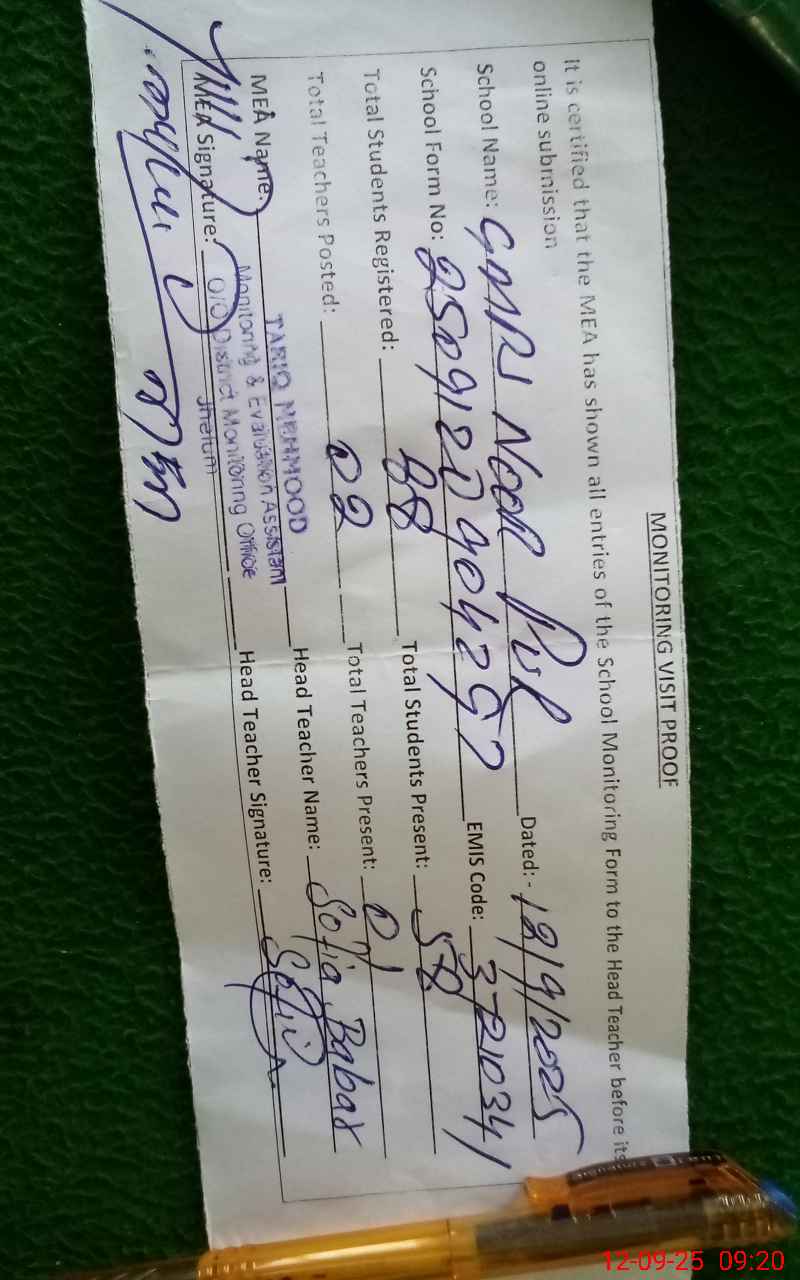 MONITORING VISIT PROOF
It is certified that the MEA has shown all entries of the School Monitoring Form to the Head Teacher before its
online submission
School Name: GMPS Noor Pur Dated:- 12/9/2025
School Form No: EMIS Code: 37210341
Total Students Registered: 88 Total Students Present: 58
Total Teachers Posted: 02 Total Teachers Present: 01
MEA Name: TARIQ MEHMOOD Head Teacher Name: Sofia Babar
Monitoring & Evaluation Assistant
MEA Signature: O/O District Monitoring Office Head Teacher Signature: Sofia
Jhelum
12-09-25 09:20